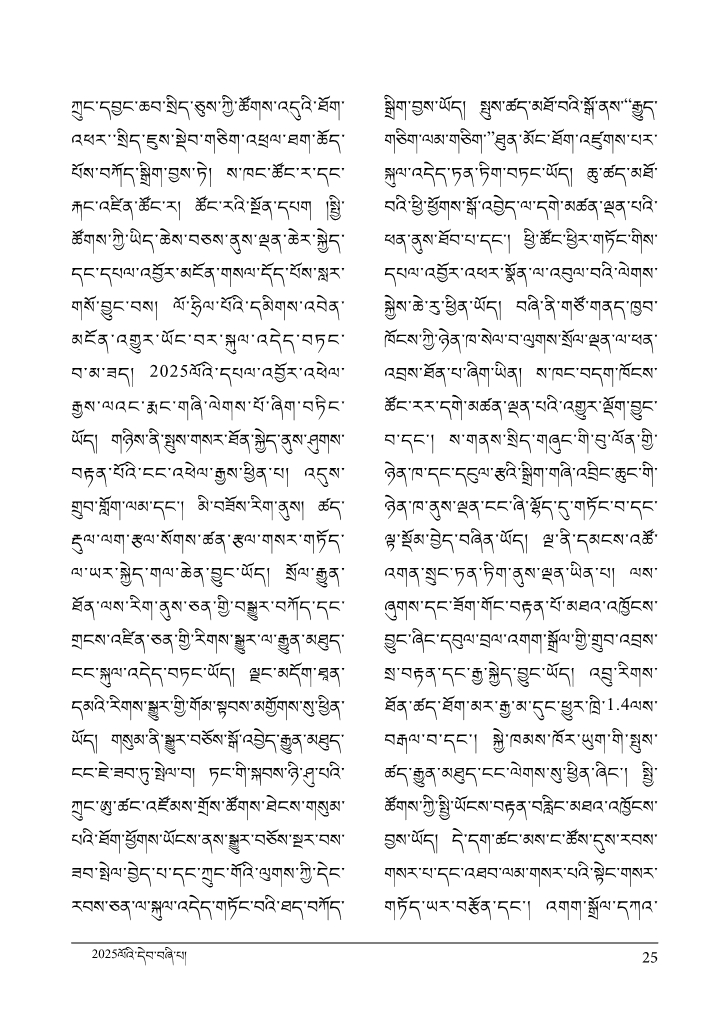 ཀྲུང་དབྱང་ཆབ་སྲིད་ཅུས་ཀྱི་ཚོགས་འདུའི་ཐོག་
འཕར་་སྲིད་ཇུས་སྡེབ་གཅིག་འཕྲལ་ཐག་ཆོད་
པོས་བཀོད་སྒྲིག་བྱས་ཏེ། ས་ཁང་ཚོང་ར་དང་
རྐང་འཛིན་ཚོང་ར། ཚོང་རའི་སྔོན་དཔག །སྤྱི་
ཚོགས་ཀྱི་ཡིད་ཆེས་བཅས་ནུས་ལྡན་ཆེར་སྐྱེད་
དང་དཔལ་འབྱོར་མངོན་གསལ་དོད་པོས་སླར་
གསོ་བྱུང་བས། ལོ་ཧྲིལ་པོའི་དམིགས་འབེན་
མངོན་འགྱུར་ཡོང་བར་སྐུལ་འདེད་བཏང་
བ་མ་ཟད། 2025ལོའི་དཔལ་འབྱོར་འཕེལ་
རྒྱས་ལའང་རྨང་གཞི་ལེགས་པོ་ཞིག་བཏིང་
ཡོད། གཉིས་ནི་སྤུས་གསར་ཐོན་སྐྱེད་ནུས་ཤུགས་
བརྟན་པོའི་ངང་འཕེལ་རྒྱས་ཕྱིན་པ། འདུས་
གྲུབ་གློག་ལམ་དང་། མི་བཟོས་རིག་ནུས། ཚད་
རྡུལ་ལག་རྩལ་སོགས་ཚན་རྩལ་གསར་གཏོད་
ལ་ཡར་སྐྱེད་གལ་ཆེན་བྱུང་ཡོད། སྲོལ་རྒྱུན་
ཐོན་ལས་རིག་ནུས་ཅན་གྱི་བསྒྱུར་བཀོད་དང་
གྲངས་འཛིན་ཅན་གྱི་རིགས་སྒྱུར་ལ་རྒྱུན་མཐུད་
ངང་སྐུལ་འདེད་བཏང་ཡོད། ལྗང་མདོག་ཐན་
དམའི་རིགས་སྒྱུར་གྱི་གོམ་སྟབས་མགྱོགས་སུ་ཕྱིན་
ཡོད། གསུམ་ནི་སྒྱུར་བཅོས་སྒོ་འབྱེད་རྒྱུན་མཐུད་
ངང་ཇེ་ཟབ་ཏུ་སྤེལ་བ། ཏང་གི་སྐབས་ཉི་ཤུ་པའི་
ཀྲུང་ཨུ་ཚང་འཛོམས་གྲོས་ཚོགས་ཐེངས་གསུམ་
པའི་ཐོག་ཕྱོགས་ཡོངས་ནས་སྒྱུར་བཅོས་སྔར་བས་
ཟབ་སྤེལ་བྱེད་པ་དང་ཀྲུང་གོའི་ལུགས་ཀྱི་དེང་
རབས་ཅན་ལ་སྐུལ་འདེད་གཏོང་བའི་ཐད་བཀོད་
སྒྲིག་བྱས་ཡོད། སྤུས་ཚད་མཐོ་བའི་སྒོ་ནས་“རྒྱུད་
གཅིག་ལམ་གཅིག་”ཐུན་མོང་ཐོག་འཛུགས་པར་
སྐུལ་འདེད་ཏན་ཏིག་བཏང་ཡོད། ཆུ་ཚད་མཐོ་
བའི་ཕྱི་ཕྱོགས་སྒོ་འབྱེད་ལ་དགེ་མཚན་ལྡན་པའི་
ཕན་ནུས་ཐོབ་པ་དང་། ཕྱི་ཚོང་ཕྱིར་གཏོང་གིས་
དཔལ་འབྱོར་འཕར་སྣོན་ལ་འབུལ་བའི་ལེགས་
སྐྱེས་ཆེ་རུ་ཕྱིན་ཡོད། བཞི་ནི་གཙོ་གནད་ཁྱབ་
ཁོངས་ཀྱི་ཉེན་ཁ་སེལ་བ་ལུགས་སྲོལ་ལྡན་ལ་ཕན་
འབྲས་ཐོན་པ་ཞིག་ཡིན། ས་ཁང་བདག་ཁོངས་
ཚོང་རར་དགེ་མཚན་ལྡན་པའི་འགྱུར་ལྡོག་བྱུང་
བ་དང་། ས་གནས་སྲིད་གཞུང་གི་བུ་ལོན་གྱི་
ཉེན་ཁ་དང་དངུལ་རྩའི་སྒྲིག་གཞི་འབྲིང་ཆུང་གི་
ཉེན་ཁ་ནུས་ལྡན་ངང་ཞི་ལྷོད་དུ་གཏོང་བ་དང་
ལྟ་སྡོམ་བྱེད་བཞིན་ཡོད། ལྔ་ནི་དམངས་འཚོ་
འགན་སྲུང་ཏན་ཏིག་ནུས་ལྡན་ཡིན་པ། ལས་
ཞུགས་དང་ཟོག་གོང་བརྟན་པོ་མཐའ་འཁྱོངས་
བྱུང་ཞིང་དབུལ་བྲལ་འགག་སྒྲོལ་གྱི་གྲུབ་འབྲས་
སྲ་བརྟན་དང་རྒྱ་སྐྱེད་བྱུང་ཡོད། འབྲུ་རིགས་
ཐོན་ཚད་ཐོག་མར་རྒྱ་མ་དུང་ཕྱུར་ཁྲི་1.4ལས་
བརྒལ་བ་དང་། སྐྱེ་ཁམས་ཁོར་ཡུག་གི་སྤུས་
ཚད་རྒྱུན་མཐུད་ངང་ལེགས་སུ་ཕྱིན་ཞིང་། སྤྱི་
ཚོགས་ཀྱི་སྤྱི་ཡོངས་བརྟན་བརླིང་མཐའ་འཁྱོངས་
བྱས་ཡོད། དེ་དག་ཚང་མས་ང་ཚོས་དུས་རབས་
གསར་པ་དང་འཐབ་ལམ་གསར་པའི་སྟེང་གསར་
གཏོད་ཡར་བརྩོན་དང་། འགག་སྒྲོལ་དཀའ་
2025ལོའི་དེབ་བཞི་པ། 25